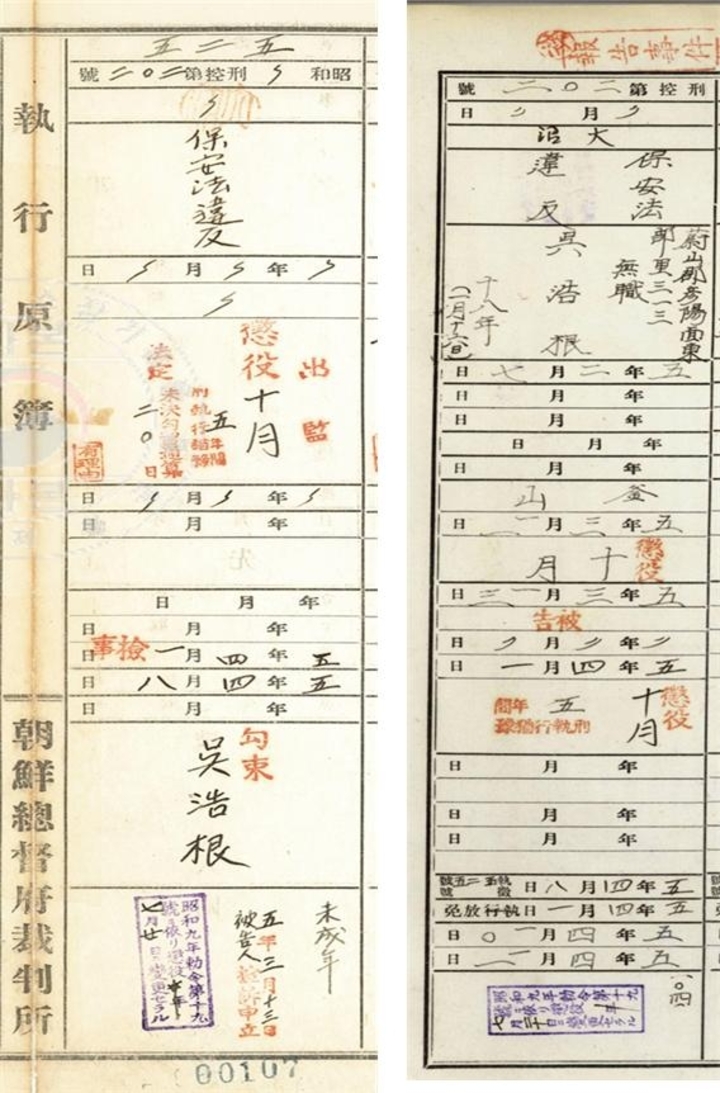 執行原簿
朝鮮總督府裁判所
五二五
昭和 刑控第二〇二號
保安法違反
年 月 日
出監
懲役十月
刑執行猶豫五年間
未決勾留通算二〇日
法定
有理由
年 月 日
年 月 日
年 月 日
年 月 日
五 四月一日 檢事
五年四月八日
年 月 日
勾束
吳浩根
未成年
五年三月十三日
被告人控訴申立
昭和九年勅令第十九
號ニ依リ懲役
七月 日ニ變更セラル
00107
報告事件
刑控第二〇二號
月 日
大沼
保安法
違反
蔚山郡彥陽面東
部里三一三
無職
吳浩根
十八年
(一月十六日)
五年二月七日
年 月 日
年 月 日
年 月 日
年 月 日
釜山
五年三月 日
懲役
十月
五年三月一三日
被告
年 月 日
五年四月一日
懲役
十月
刑執行猶豫
五年間
年 月 日
年 月 日
年 月 日
五年四月八日
五年四月一日執行放免
五年四月一〇日
五年四月 日
昭和九年勅令第十九
號ニ依リ懲役
七月二十日ニ變更セラル